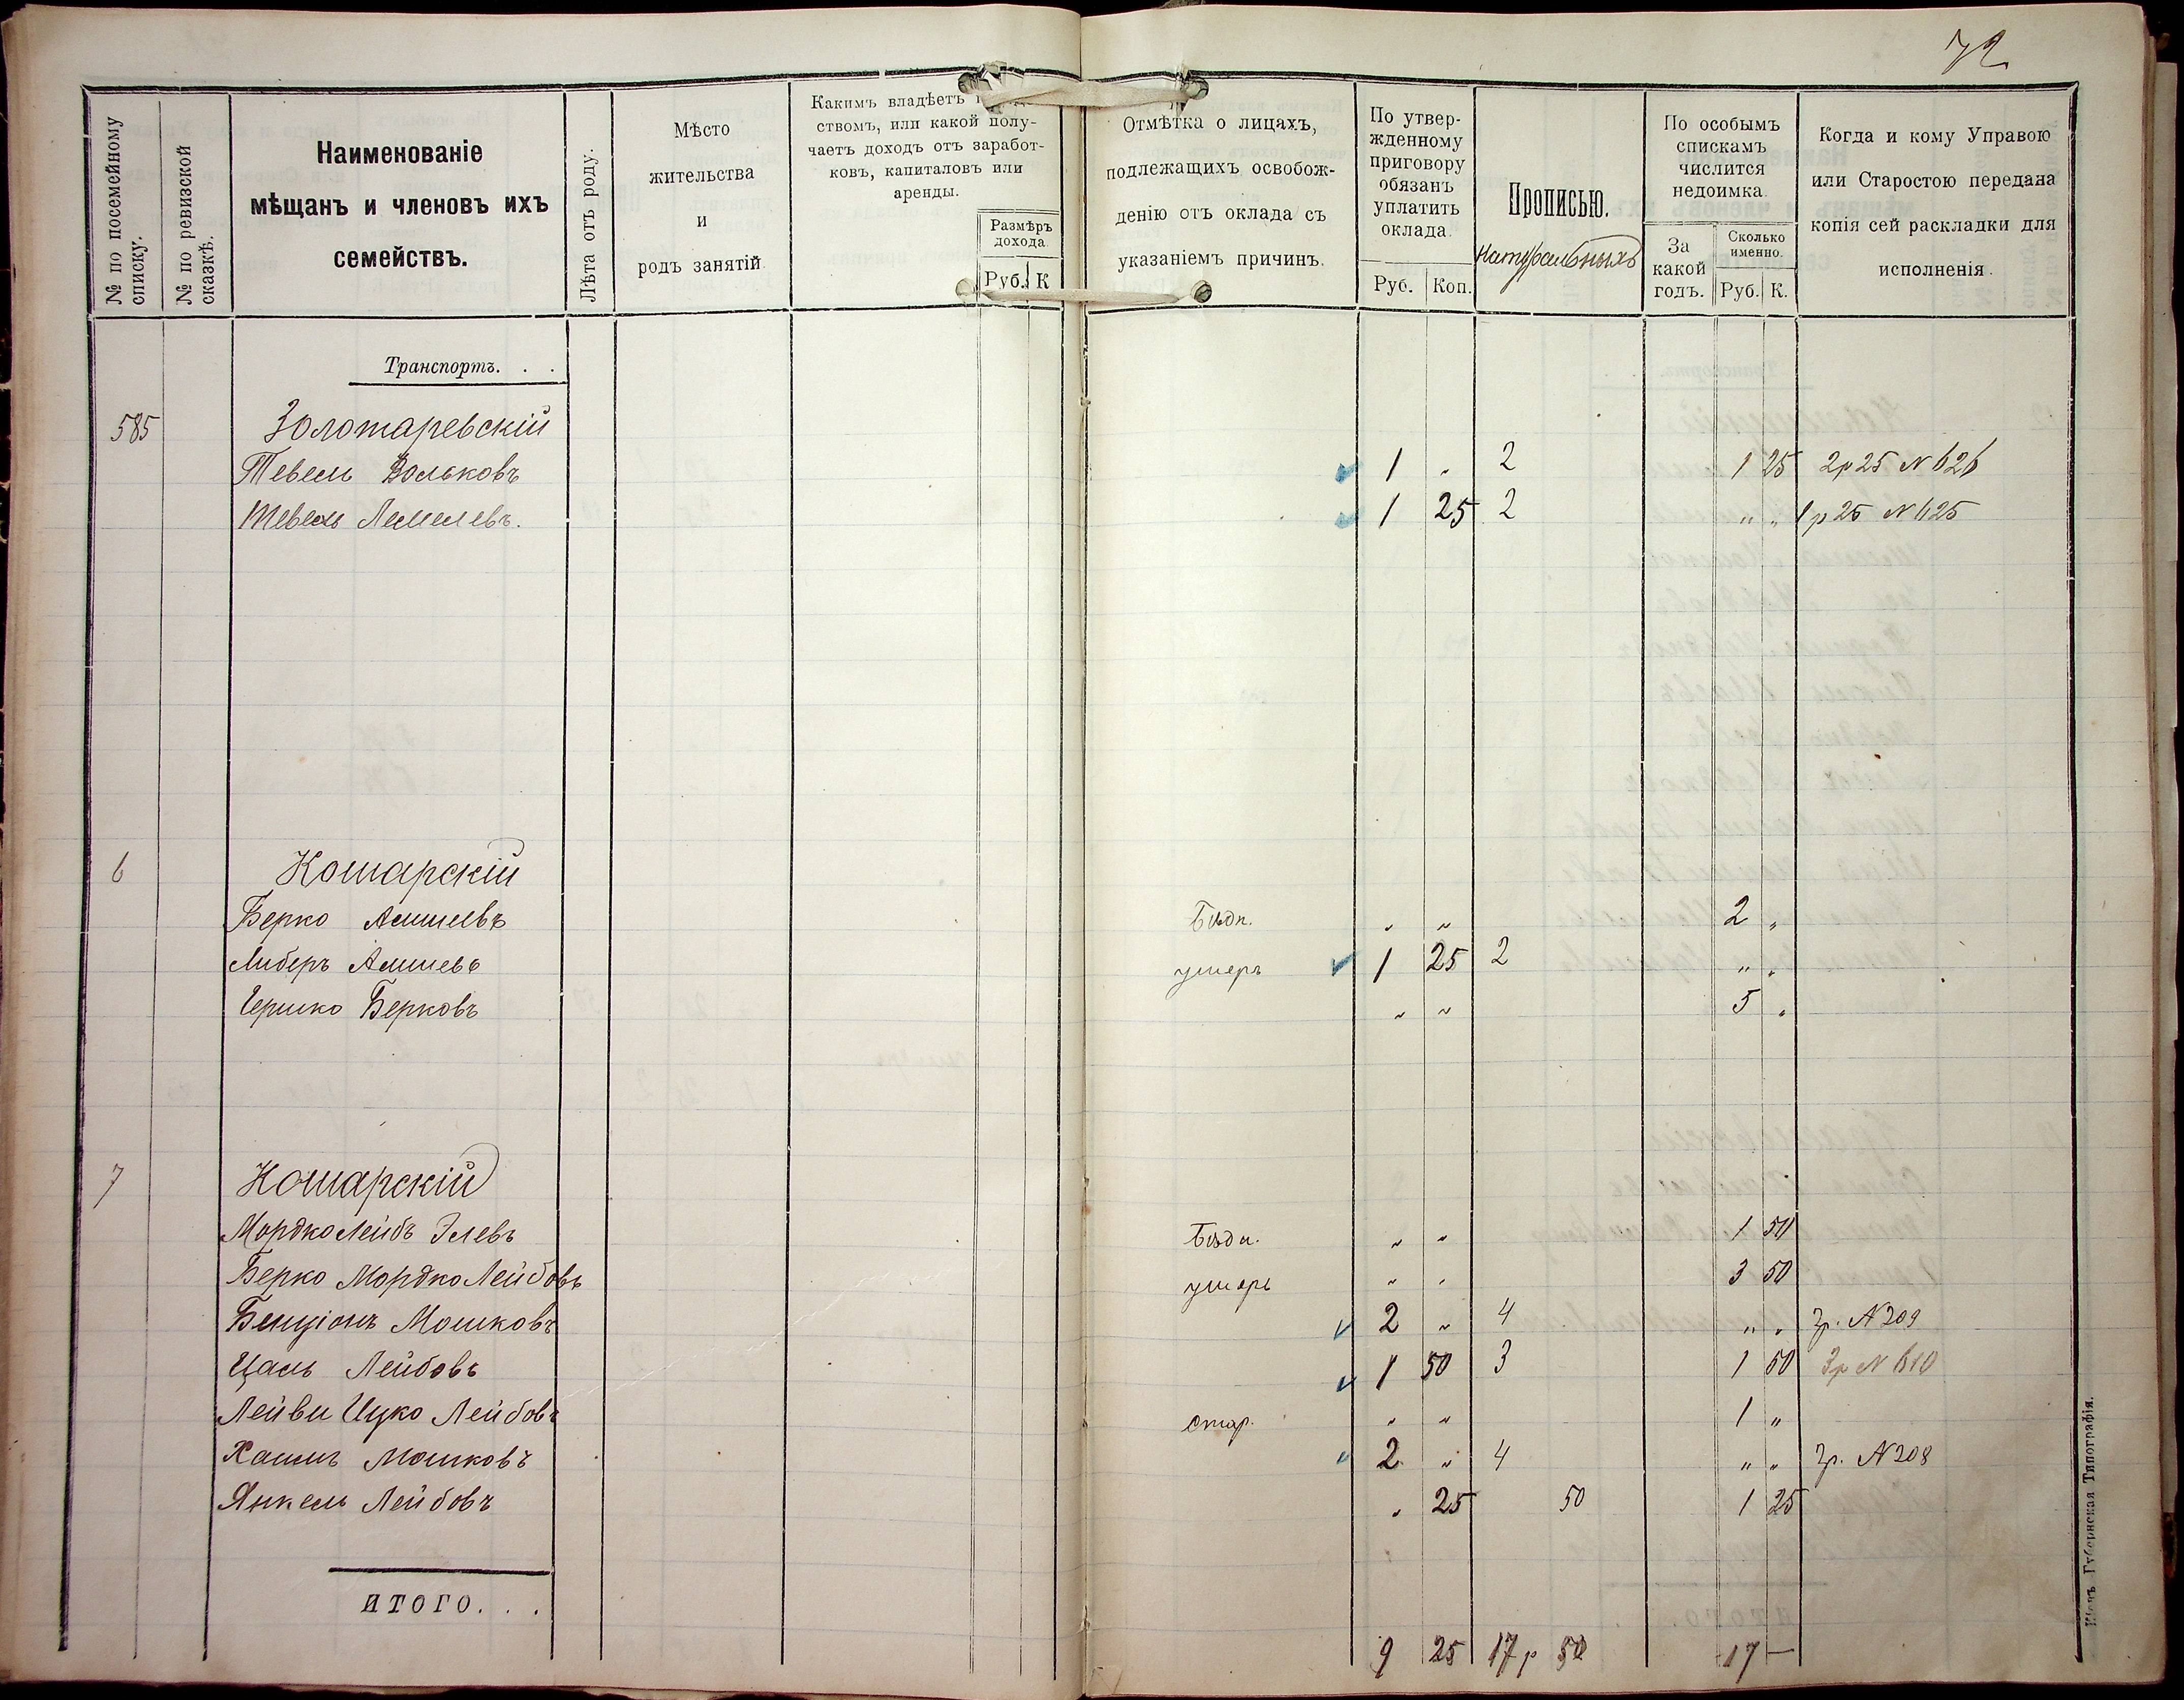 72
№ по посемейному списку.
№ по ревизской сказкѣ.
Наименованіе
мѣщанъ и членовъ ихъ
семействъ.
Лѣта отъ роду.
Мѣсто
жительства
и
родъ занятій.
Какимъ владѣетъ
ствомъ, или какой полу-
чаетъ доходъ отъ заработ-
ковъ, капиталовъ или
аренды.
Размѣръ
дохода.
Руб. К
Отмѣтка о лицахъ,
подлежащихъ освобож-
денію отъ оклада съ
указаніемъ причинъ.
По утвер-
жденному
приговору
обязанъ
уплатить
оклада.
Руб. Коп.
Прописью.
натуральныхъ
По особымъ
спискамъ
числится
недоимка.
За
какой
годъ.
Сколько
именно.
Руб. К.
Когда и кому Управою
или Старостою передана
копія сей раскладки для
исполненія.
Транспортъ. . .
585 Золотаревскій
Тевель Вольковъ 1 „ 2 1 25 2р25 N 626
Тевель Лемелевъ. 1 25 2 „ „ 1р25 N 625
6 Кошарскій
Берко Бѣдн. „ „ 2 „
Либеръ умеръ 1 25 2 „ „
Гершко Берковъ „ „ 5 „
7 Кошарскій
Мордко Лейбъ Элевъ Бѣдн. „ „ 1 50
Берко Мордко Лейбовъ умеръ „ „ 3 50
Бенціонъ Мошковъ 2 „ 4 „ „ 3р. N 209
Цаль Лейбовъ 1 50 3 1 50 3р N 610
Лейви Ицко Лейбовъ стар. „ „ 1 „
Хаимъ Мошковъ 2 „ 4 „ „ 3р. N 208
Янкель Лейбовъ „ 25 50 1 25
ИТОГО. . .
9 25 17р 50 17 —
Кіевъ Губернская Типографія.